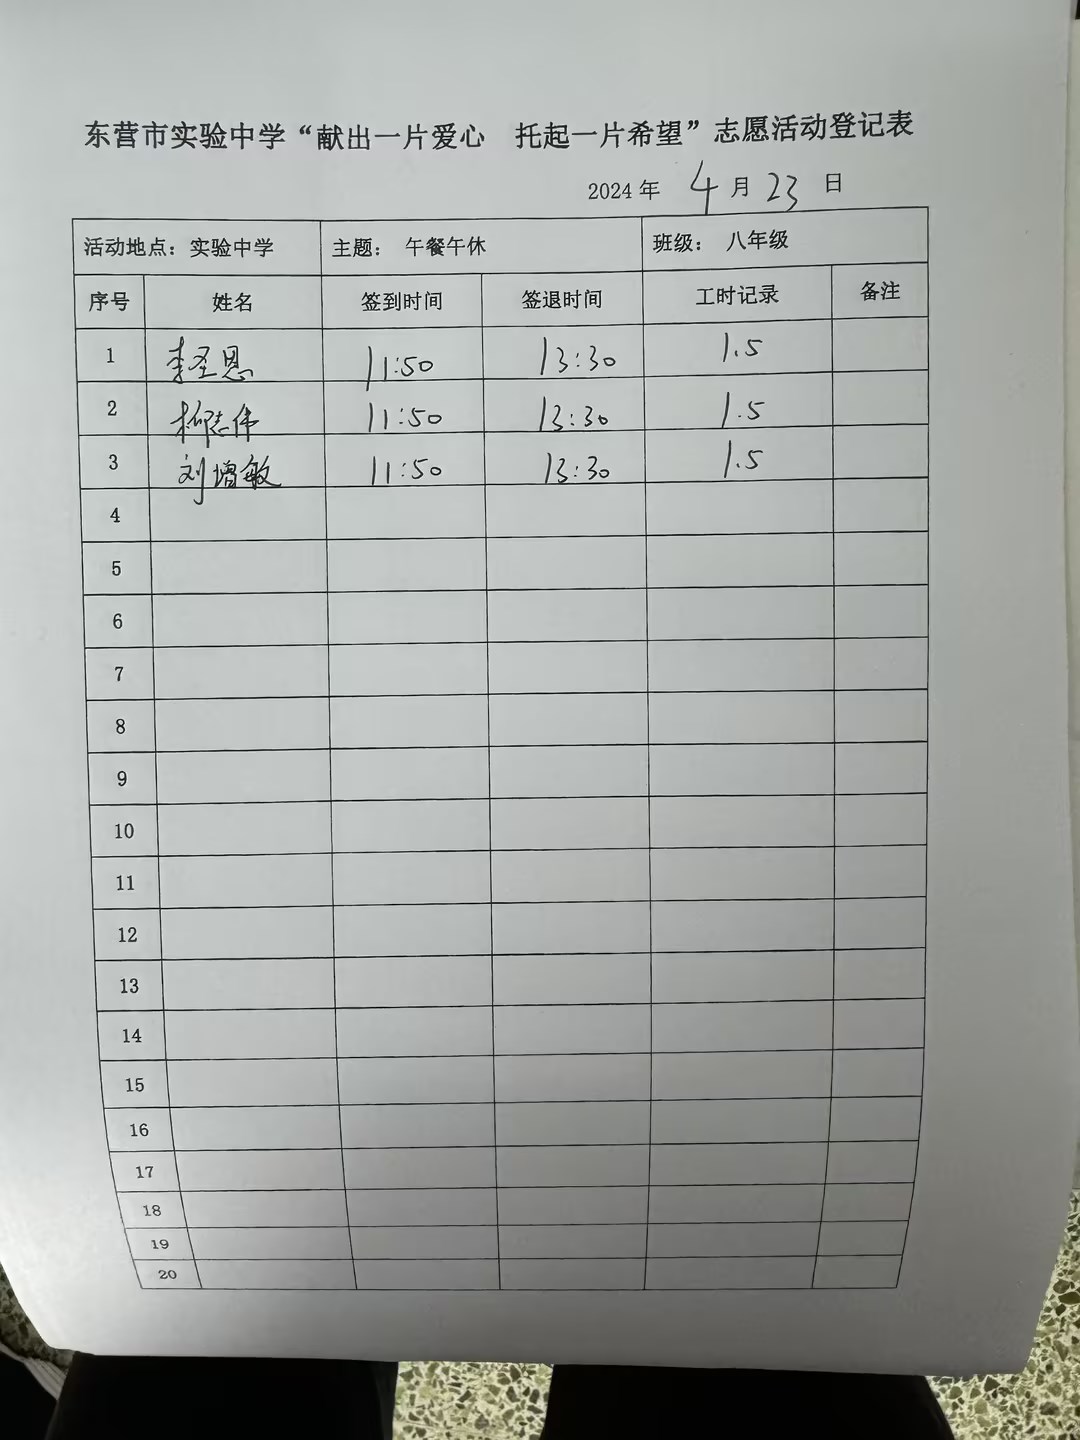 东营市实验中学“献出一片爱心 托起一片希望”志愿活动登记表
2024 年 4 月 23 日
活动地点：实验中学 主题： 午餐午休 班级： 八年级
序号 姓名 签到时间 签退时间 工时记录 备注
1 李圣恩 11:50 13:30 1.5
2 柳志伟 11:50 13:30 1.5
3 刘增敏 11:50 13:30 1.5
4
5
6
7
8
9
10
11
12
13
14
15
16
17
18
19
20